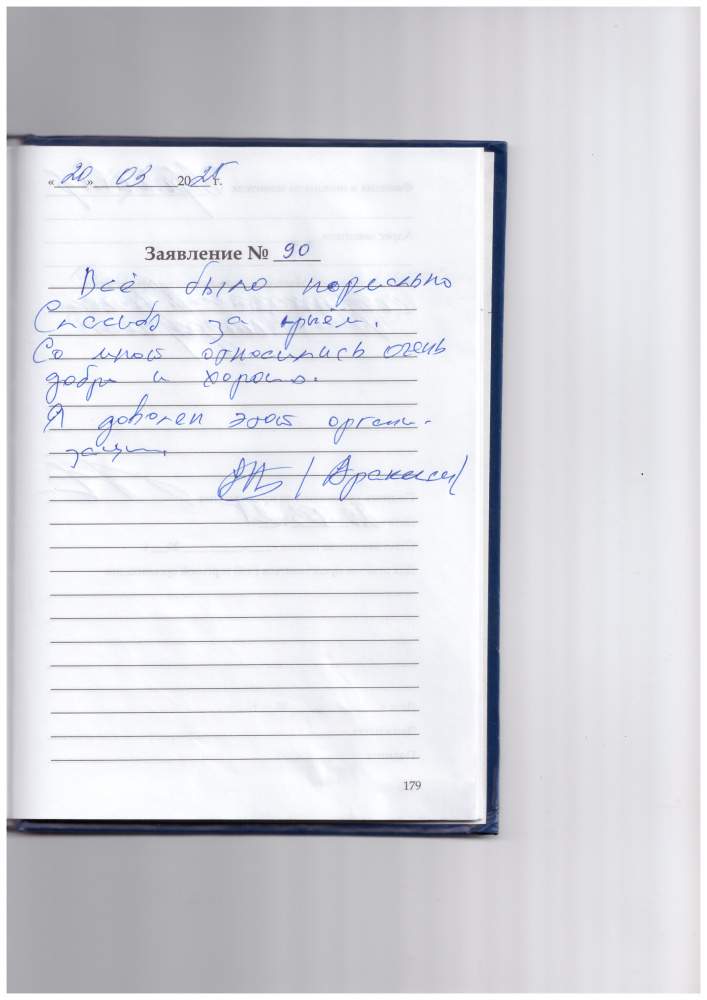 «20» 03 2025 г.
Заявление № 90
Всё было нормально
Спасибо за приём.
Со мной относились очень
добро и хорошо.
Я доволен этой органи-
зации.
179